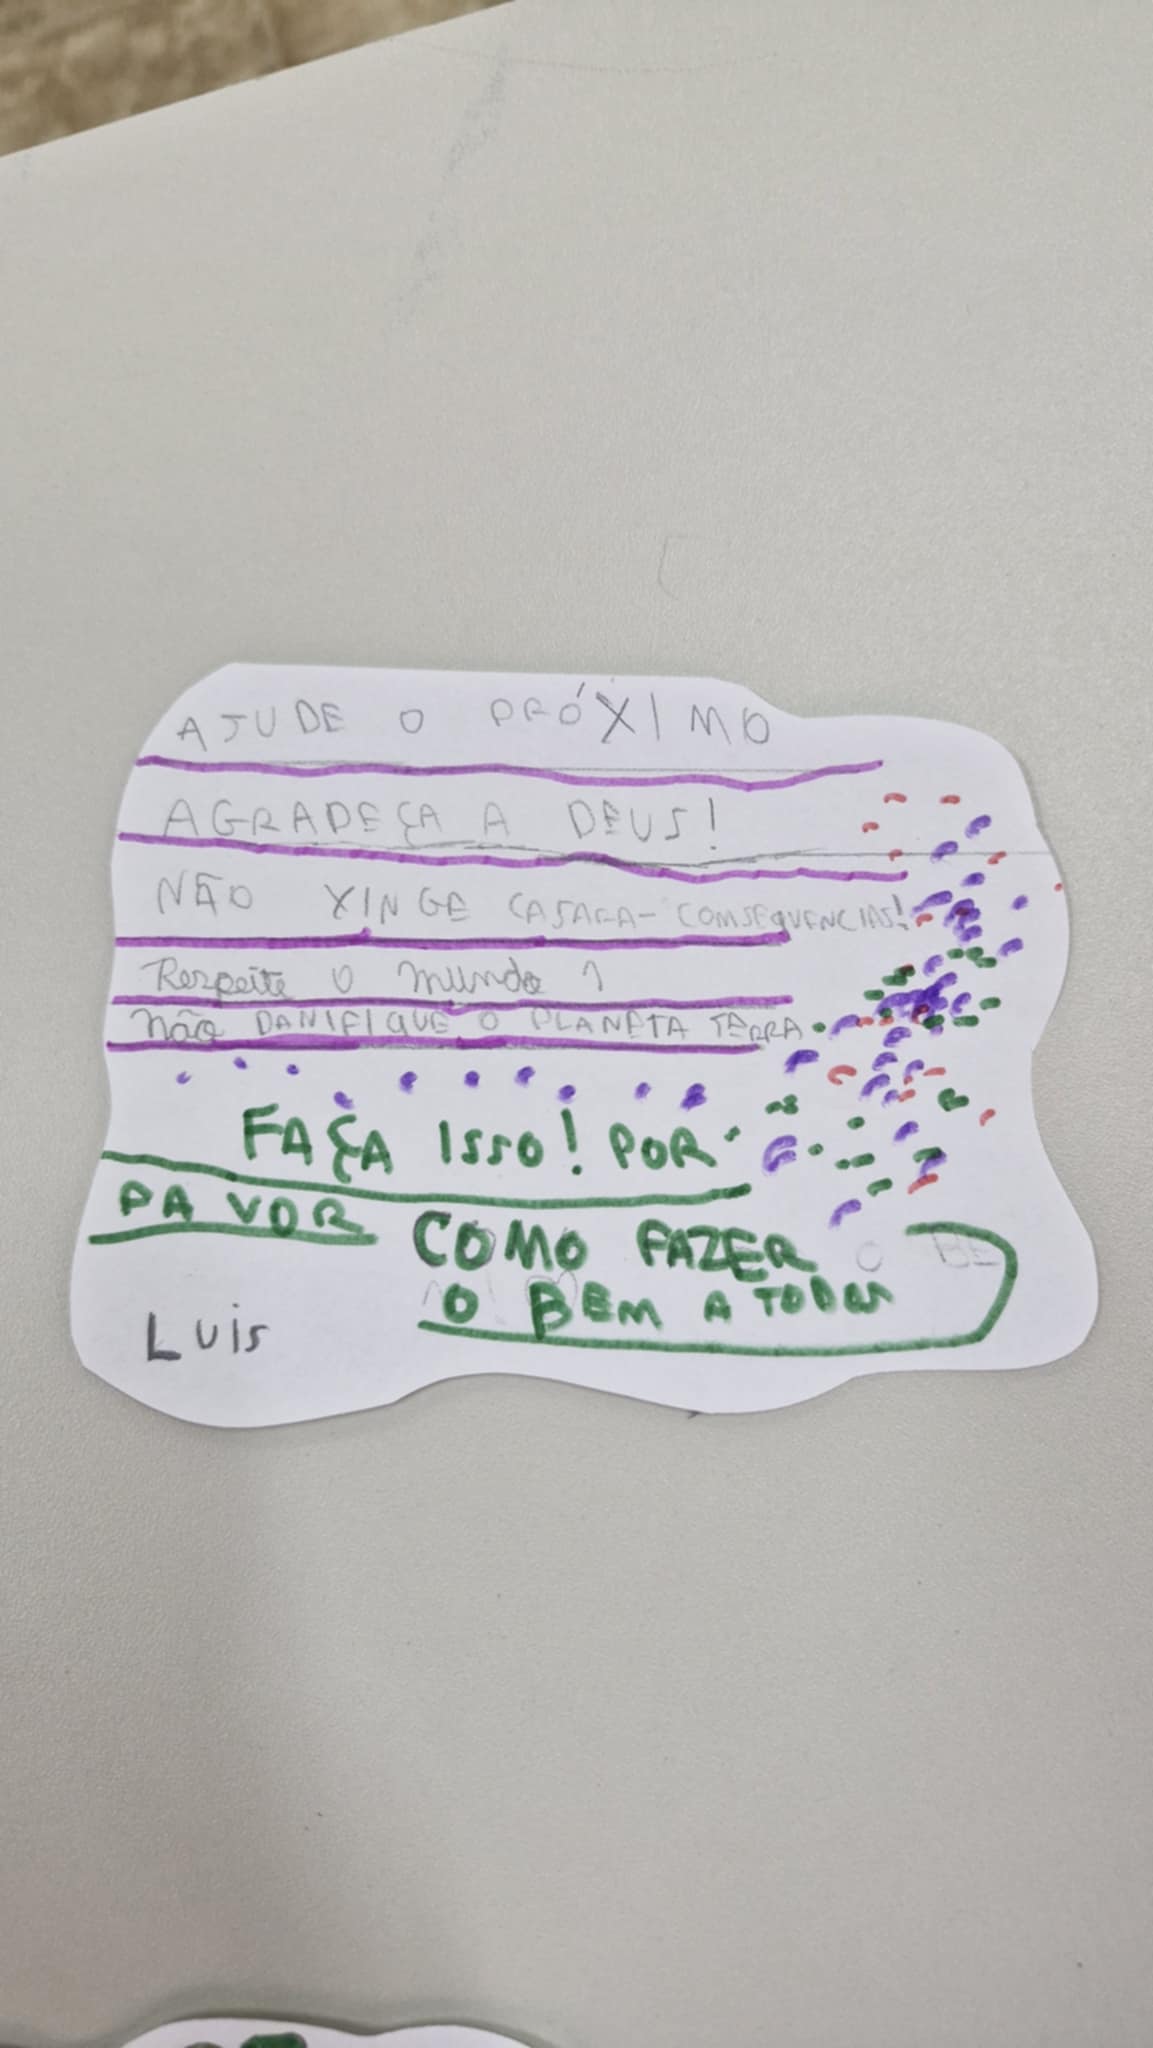 AJUDE O PRÓXIMO
AGRADEÇA A DEUS!
NÃO XINGE CASARA-COMSEQUENCIAS!
Respeite o mundo
não DANIFIQUE O PLANETA TERRA
FAÇA ISSO! POR
PAVOR
COMO FAZER
O BEM A TODOS
Luis